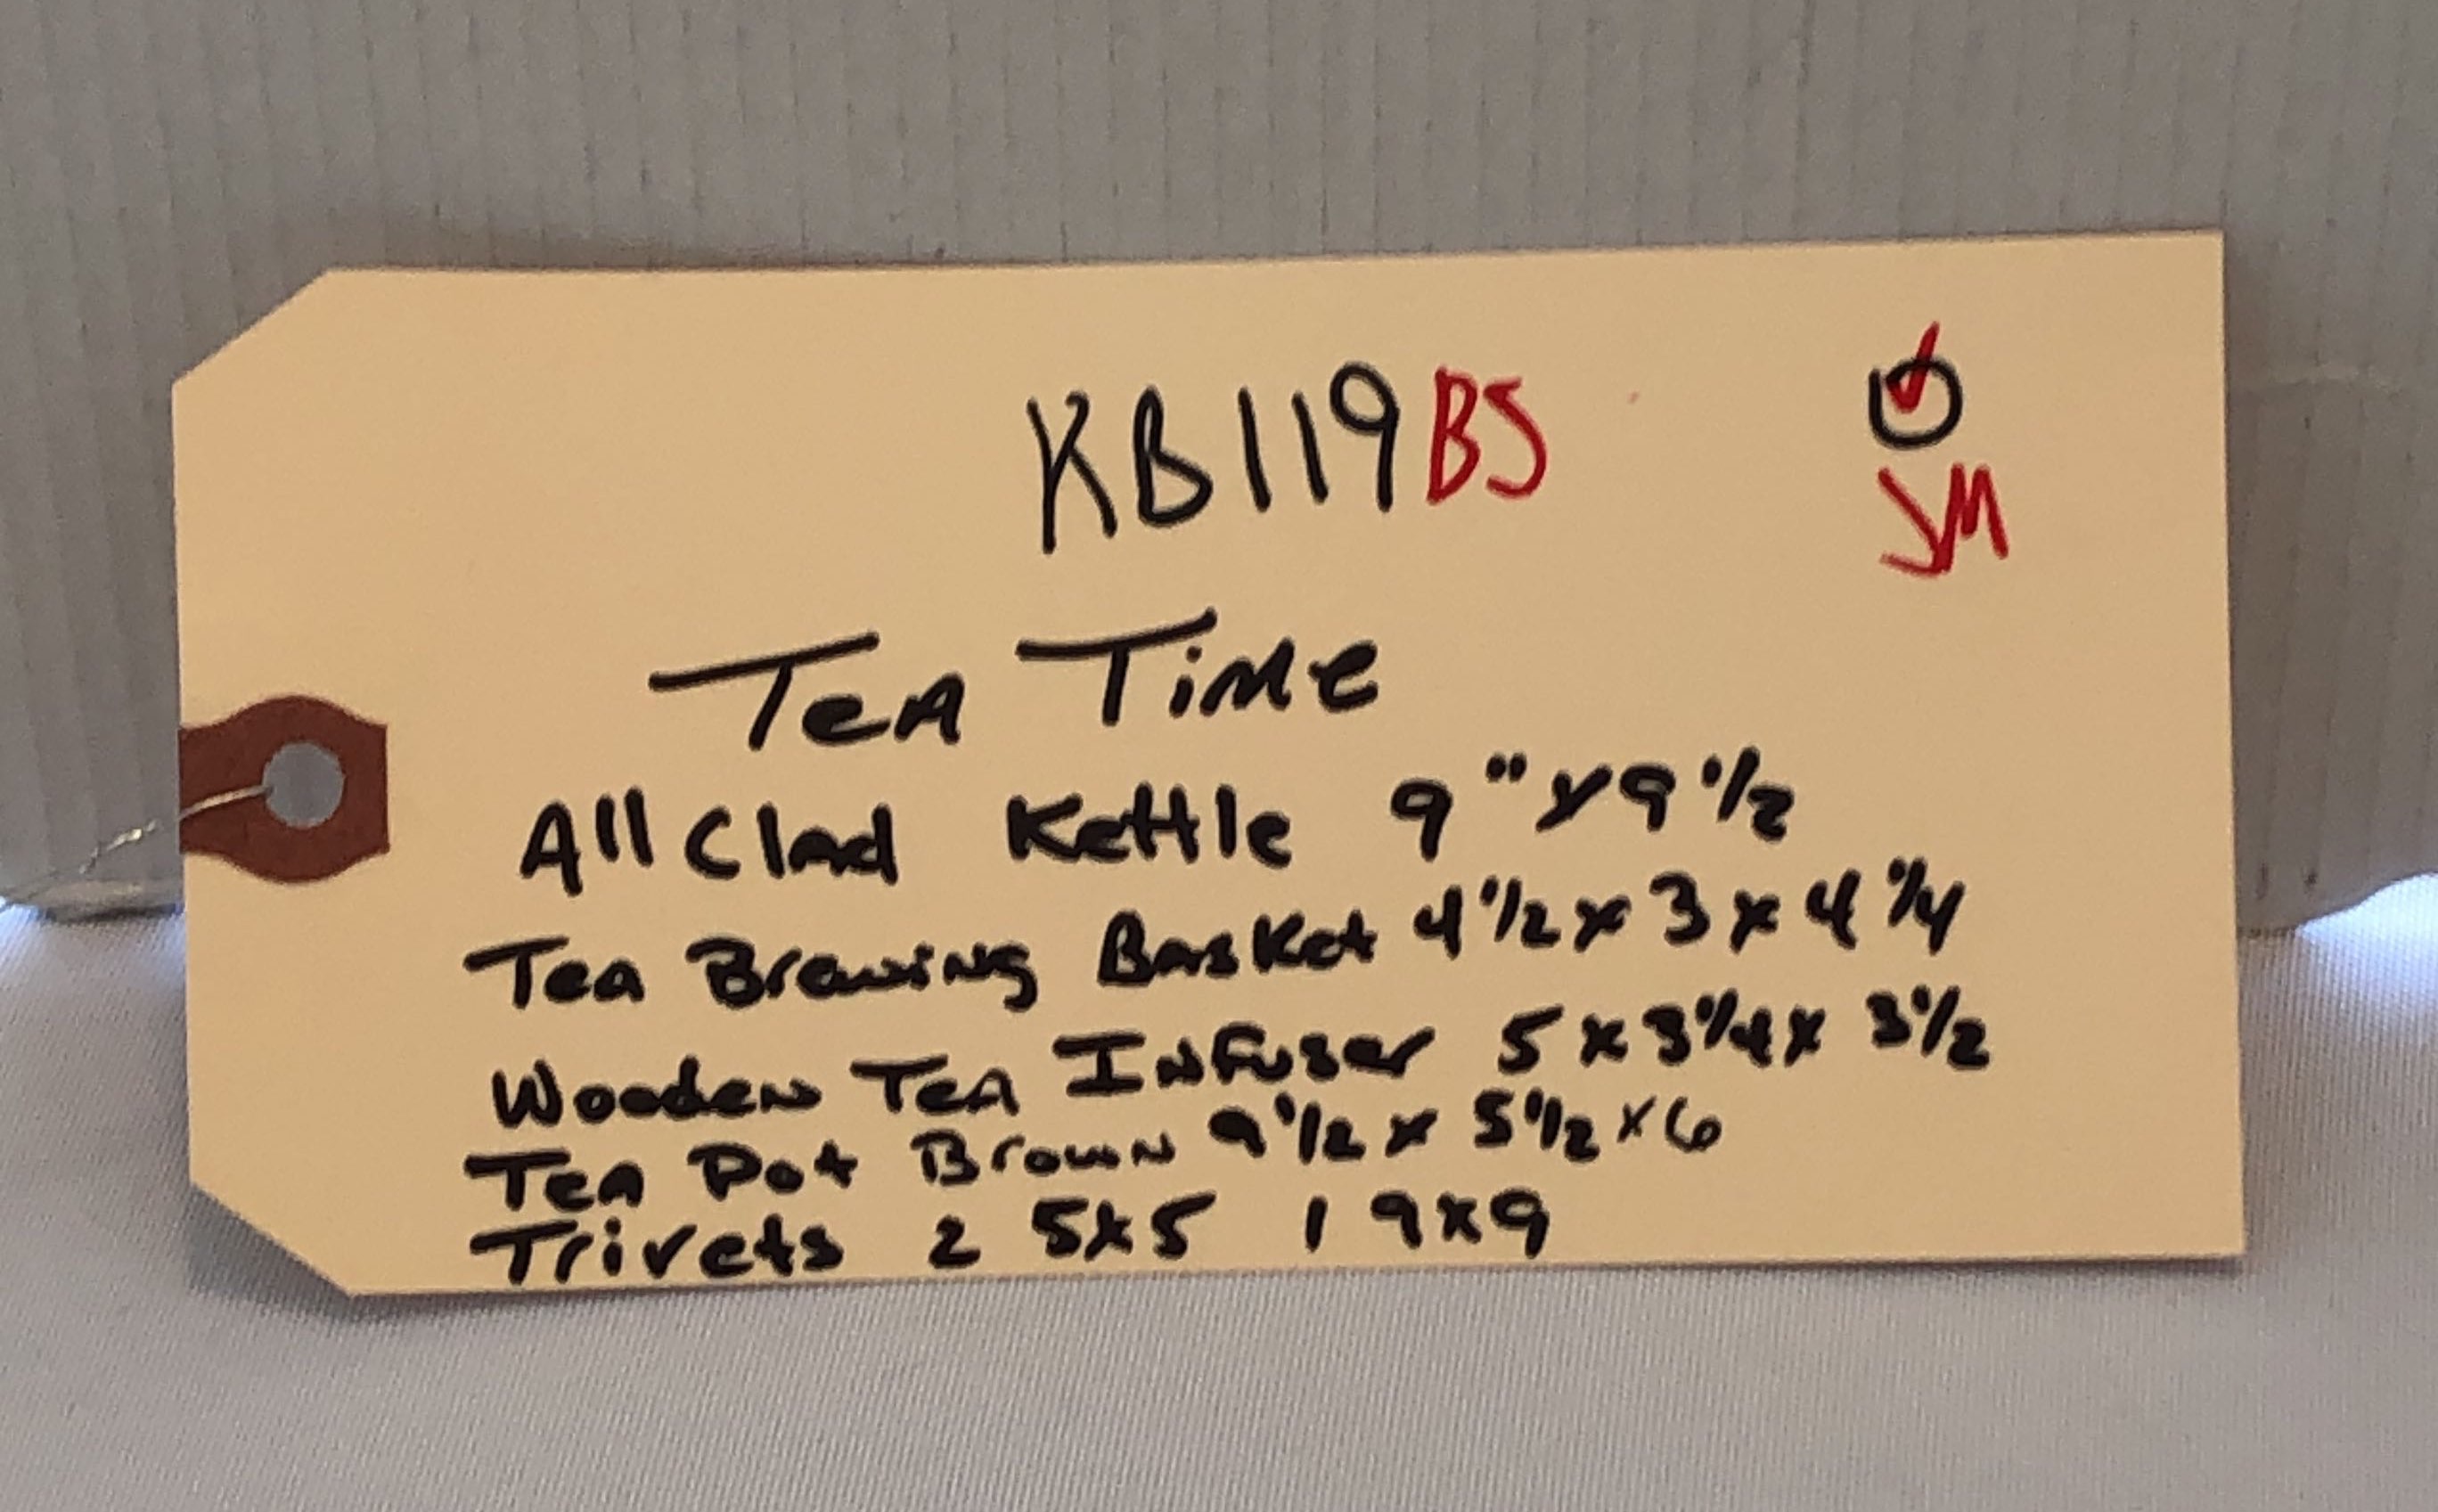 KB119 BS
JM
Tea Time
All Clad Kettle 9" x 9 1/2
Tea Brewing Basket 4 1/2 x 3 x 4 1/4
Wooden Tea Infuser 5 x 3 1/4 x 3 1/2
Tea Pot Brown 9 1/2 x 5 1/2 x 6
Trivets 2 5x5 1 9x9